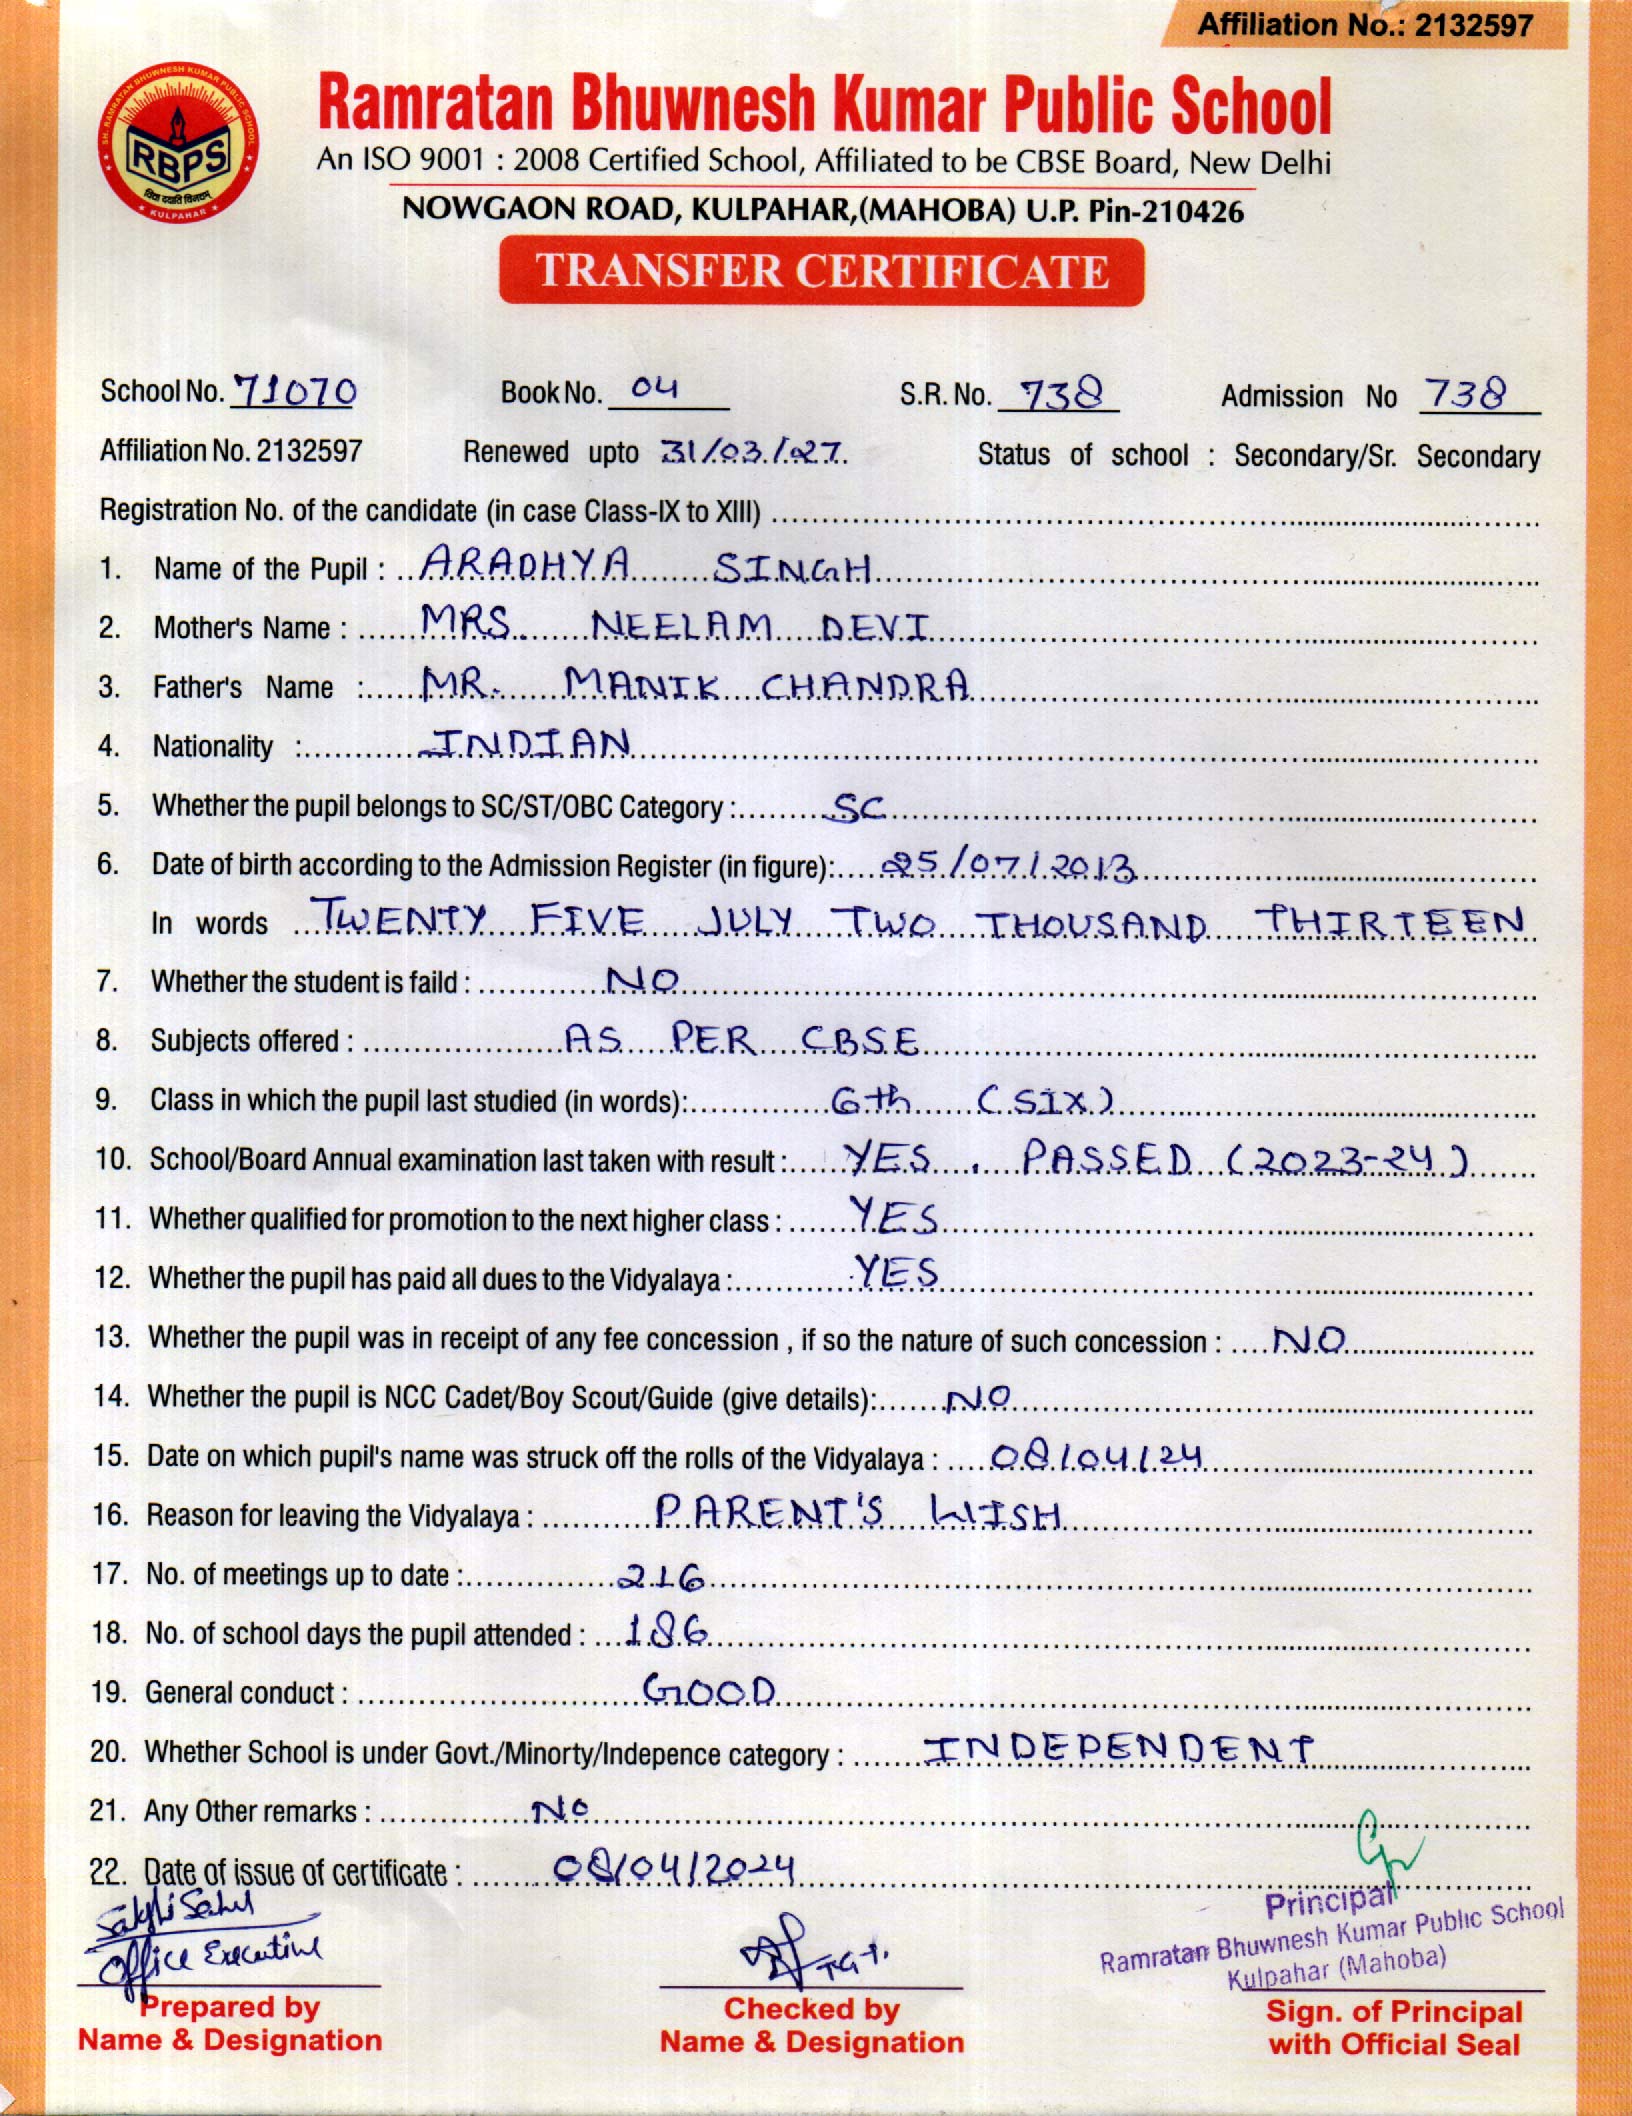 Affiliation No.: 2132597
SH. RAMRATAN BHUWNESH KUMAR PUBLIC SCHOOL
RBPS
विद्या ददाति विनयम्
★ KULPAHAR ★
Ramratan Bhuwnesh Kumar Public School
An ISO 9001 : 2008 Certified School, Affiliated to be CBSE Board, New Delhi
NOWGAON ROAD, KULPAHAR,(MAHOBA) U.P. Pin-210426
TRANSFER CERTIFICATE
School No. 71070 Book No. 04 S.R. No. 738 Admission No 738
Affiliation No. 2132597 Renewed upto 31/03/27. Status of school : Secondary/Sr. Secondary
Registration No. of the candidate (in case Class-IX to XIII)
1. Name of the Pupil : ARADHYA SINGH
2. Mother's Name : MRS. NEELAM DEVI
3. Father's Name : MR. MANIK CHANDRA
4. Nationality : INDIAN
5. Whether the pupil belongs to SC/ST/OBC Category : SC
6. Date of birth according to the Admission Register (in figure): 25/07/2013
In words TWENTY FIVE JULY TWO THOUSAND THIRTEEN
7. Whether the student is faild : NO
8. Subjects offered : AS PER CBSE
9. Class in which the pupil last studied (in words): 6th (SIX)
10. School/Board Annual examination last taken with result : YES, PASSED (2023-24)
11. Whether qualified for promotion to the next higher class : YES
12. Whether the pupil has paid all dues to the Vidyalaya : YES
13. Whether the pupil was in receipt of any fee concession , if so the nature of such concession : NO
14. Whether the pupil is NCC Cadet/Boy Scout/Guide (give details): NO
15. Date on which pupil's name was struck off the rolls of the Vidyalaya : 08/04/24
16. Reason for leaving the Vidyalaya : PARENT'S WISH
17. No. of meetings up to date : 216
18. No. of school days the pupil attended : 186
19. General conduct : GOOD
20. Whether School is under Govt./Minorty/Indepence category : INDEPENDENT
21. Any Other remarks : NO
22. Date of issue of certificate : 08/04/2024
Sakshi Sahu
Office Executive
TGT.
Principal
Ramratan Bhuwnesh Kumar Public School
Kulpahar (Mahoba)
Prepared by Checked by Sign. of Principal
Name & Designation Name & Designation with Official Seal